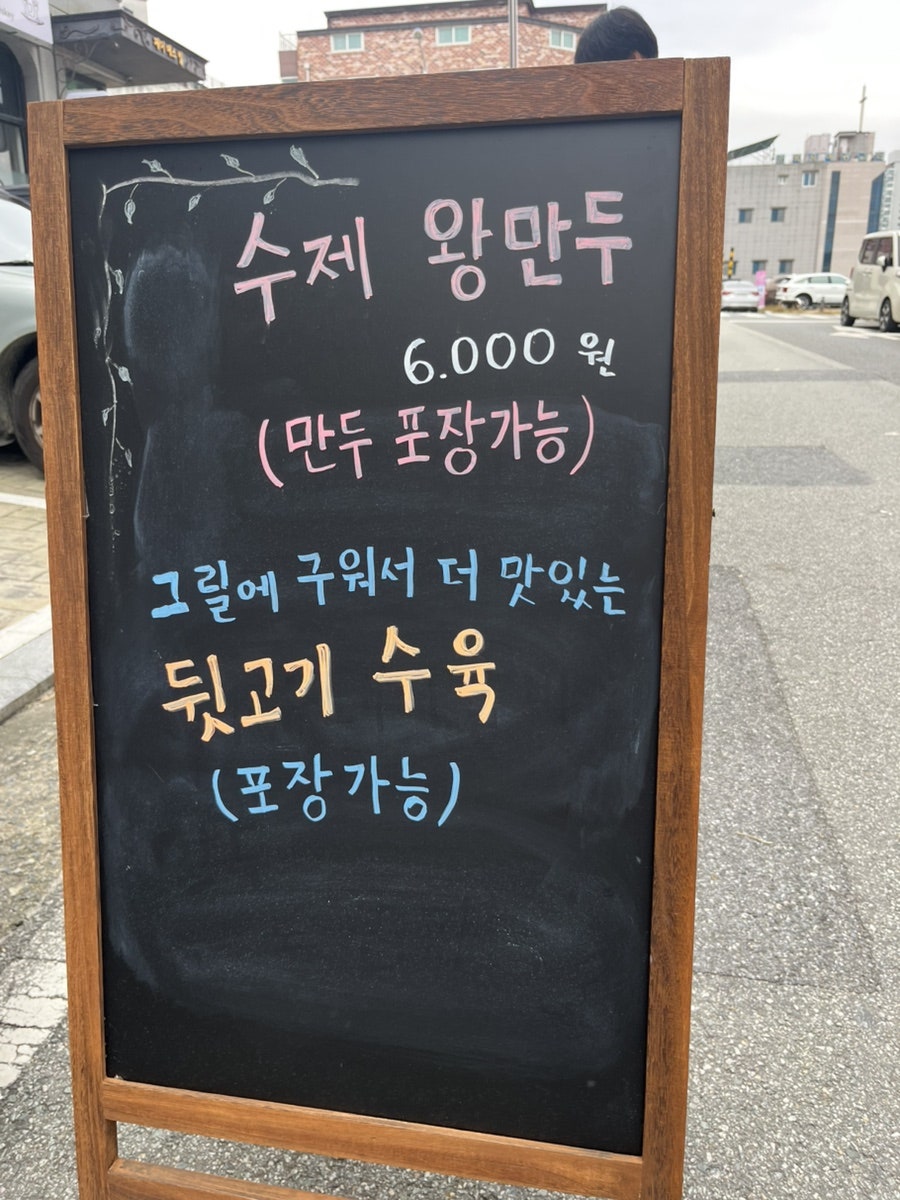 수제 왕만두
6.000 원
(만두 포장가능)
그릴에 구워서 더 맛있는
뒷고기 수육
(포장가능)